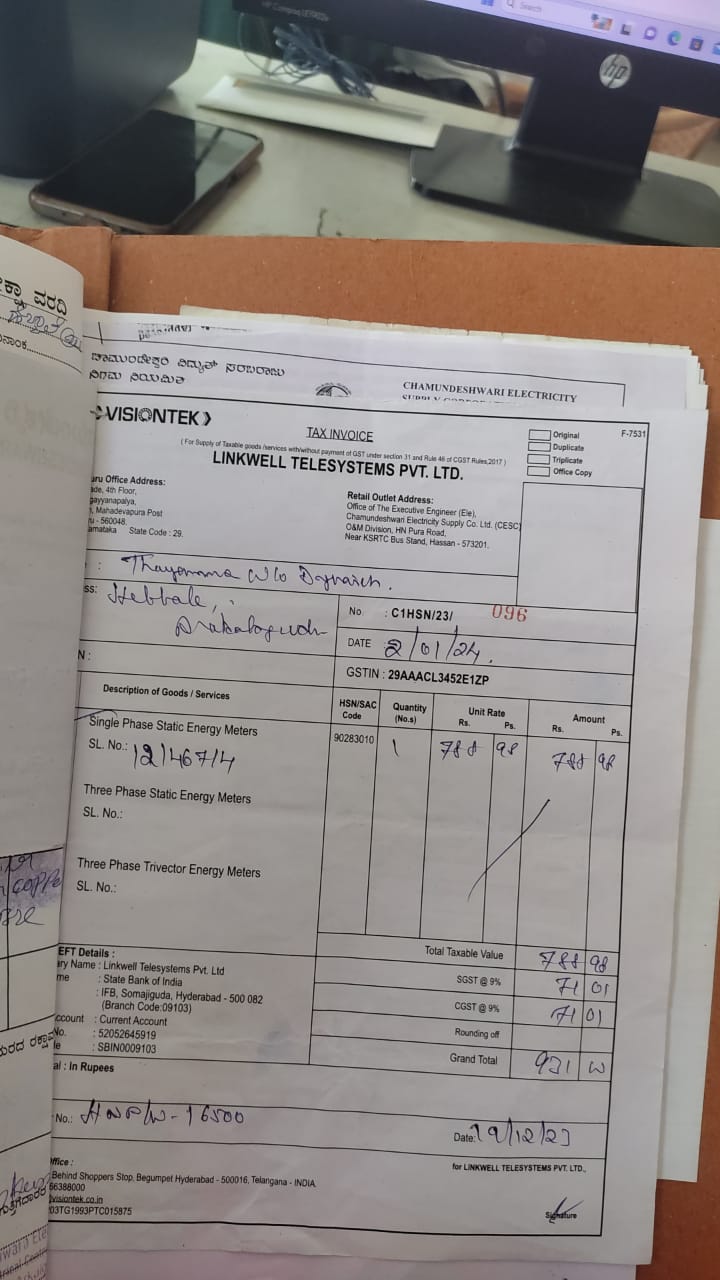 HP Compaq LE1902x
Search
hp
ವರದಿ
ಚಾಮುಂಡೇಶ್ವರಿ ವಿದ್ಯುತ್ ಸರಬರಾಜು
ನಿಗಮ ನಿಯಮಿತ
CHAMUNDESHWARI ELECTRICITY
VISIONTEK
TAX INVOICE
(For Supply of Taxable goods /services with/without payment of GST under section 31 and Rule 46 of CGST Rules,2017 )
LINKWELL TELESYSTEMS PVT. LTD.
Original
Duplicate
Triplicate
Office Copy
F-7531
uru Office Address:
ade, 4th Floor,
gayyanapalya,
, Mahadevapura Post
ru - 560048.
arnataka State Code : 29.
Retail Outlet Address:
Office of The Executive Engineer (Ele),
Chamundeshwari Electricity Supply Co. Ltd. (CESC)
O&M Division, HN Pura Road,
Near KSRTC Bus Stand, Hassan - 573201.
: Thayamma W/o
ss: Hebbale,
No. : C1HSN/23/ 096
DATE 2/01/24.
N :
GSTIN : 29AAACL3452E1ZP
Description of Goods / Services
HSN/SAC Code
Quantity (No.s)
Unit Rate Rs. Ps.
Amount Rs. Ps.
Single Phase Static Energy Meters 90283010 1 788 98 788 98
SL. No.: 12146714
Three Phase Static Energy Meters
SL. No.:
Three Phase Trivector Energy Meters
SL. No.:
Total Taxable Value 788 98
SGST @ 9% 71 01
CGST @ 9% 71 01
Rounding off
Grand Total 931
EFT Details :
ary Name : Linkwell Telesystems Pvt. Ltd
me : State Bank of India
: IFB, Somajiguda, Hyderabad - 500 082
(Branch Code:09103)
ccount : Current Account
No. : 52052645919
le : SBIN0009103
al : In Rupees
No.: HNP/W-16500
Date: 19/12/23
for LINKWELL TELESYSTEMS PVT. LTD.,
ffice :
Behind Shoppers Stop, Begumpet Hyderabad - 500016, Telangana - INDIA.
66388000
visiontek.co.in
03TG1993PTC015875
Signature